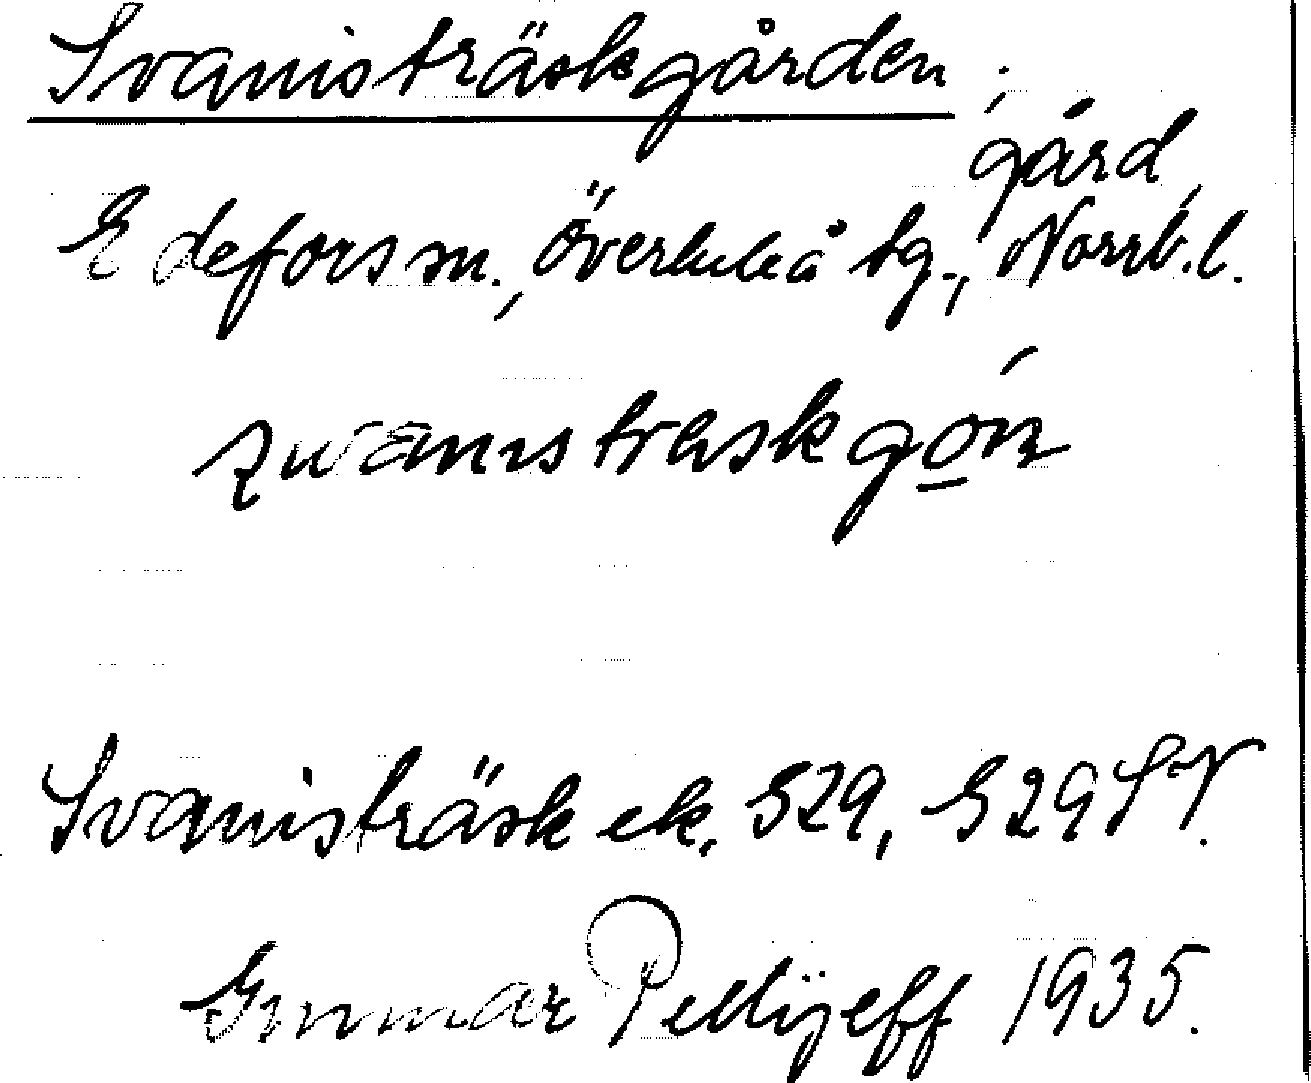 Svanisträskgården;
gård,
Edefors sn., Överluleå tg., Norrb.l.
Svanisträsk ek. 529, 529 SV.
Gunnar Pellijeff 1935.